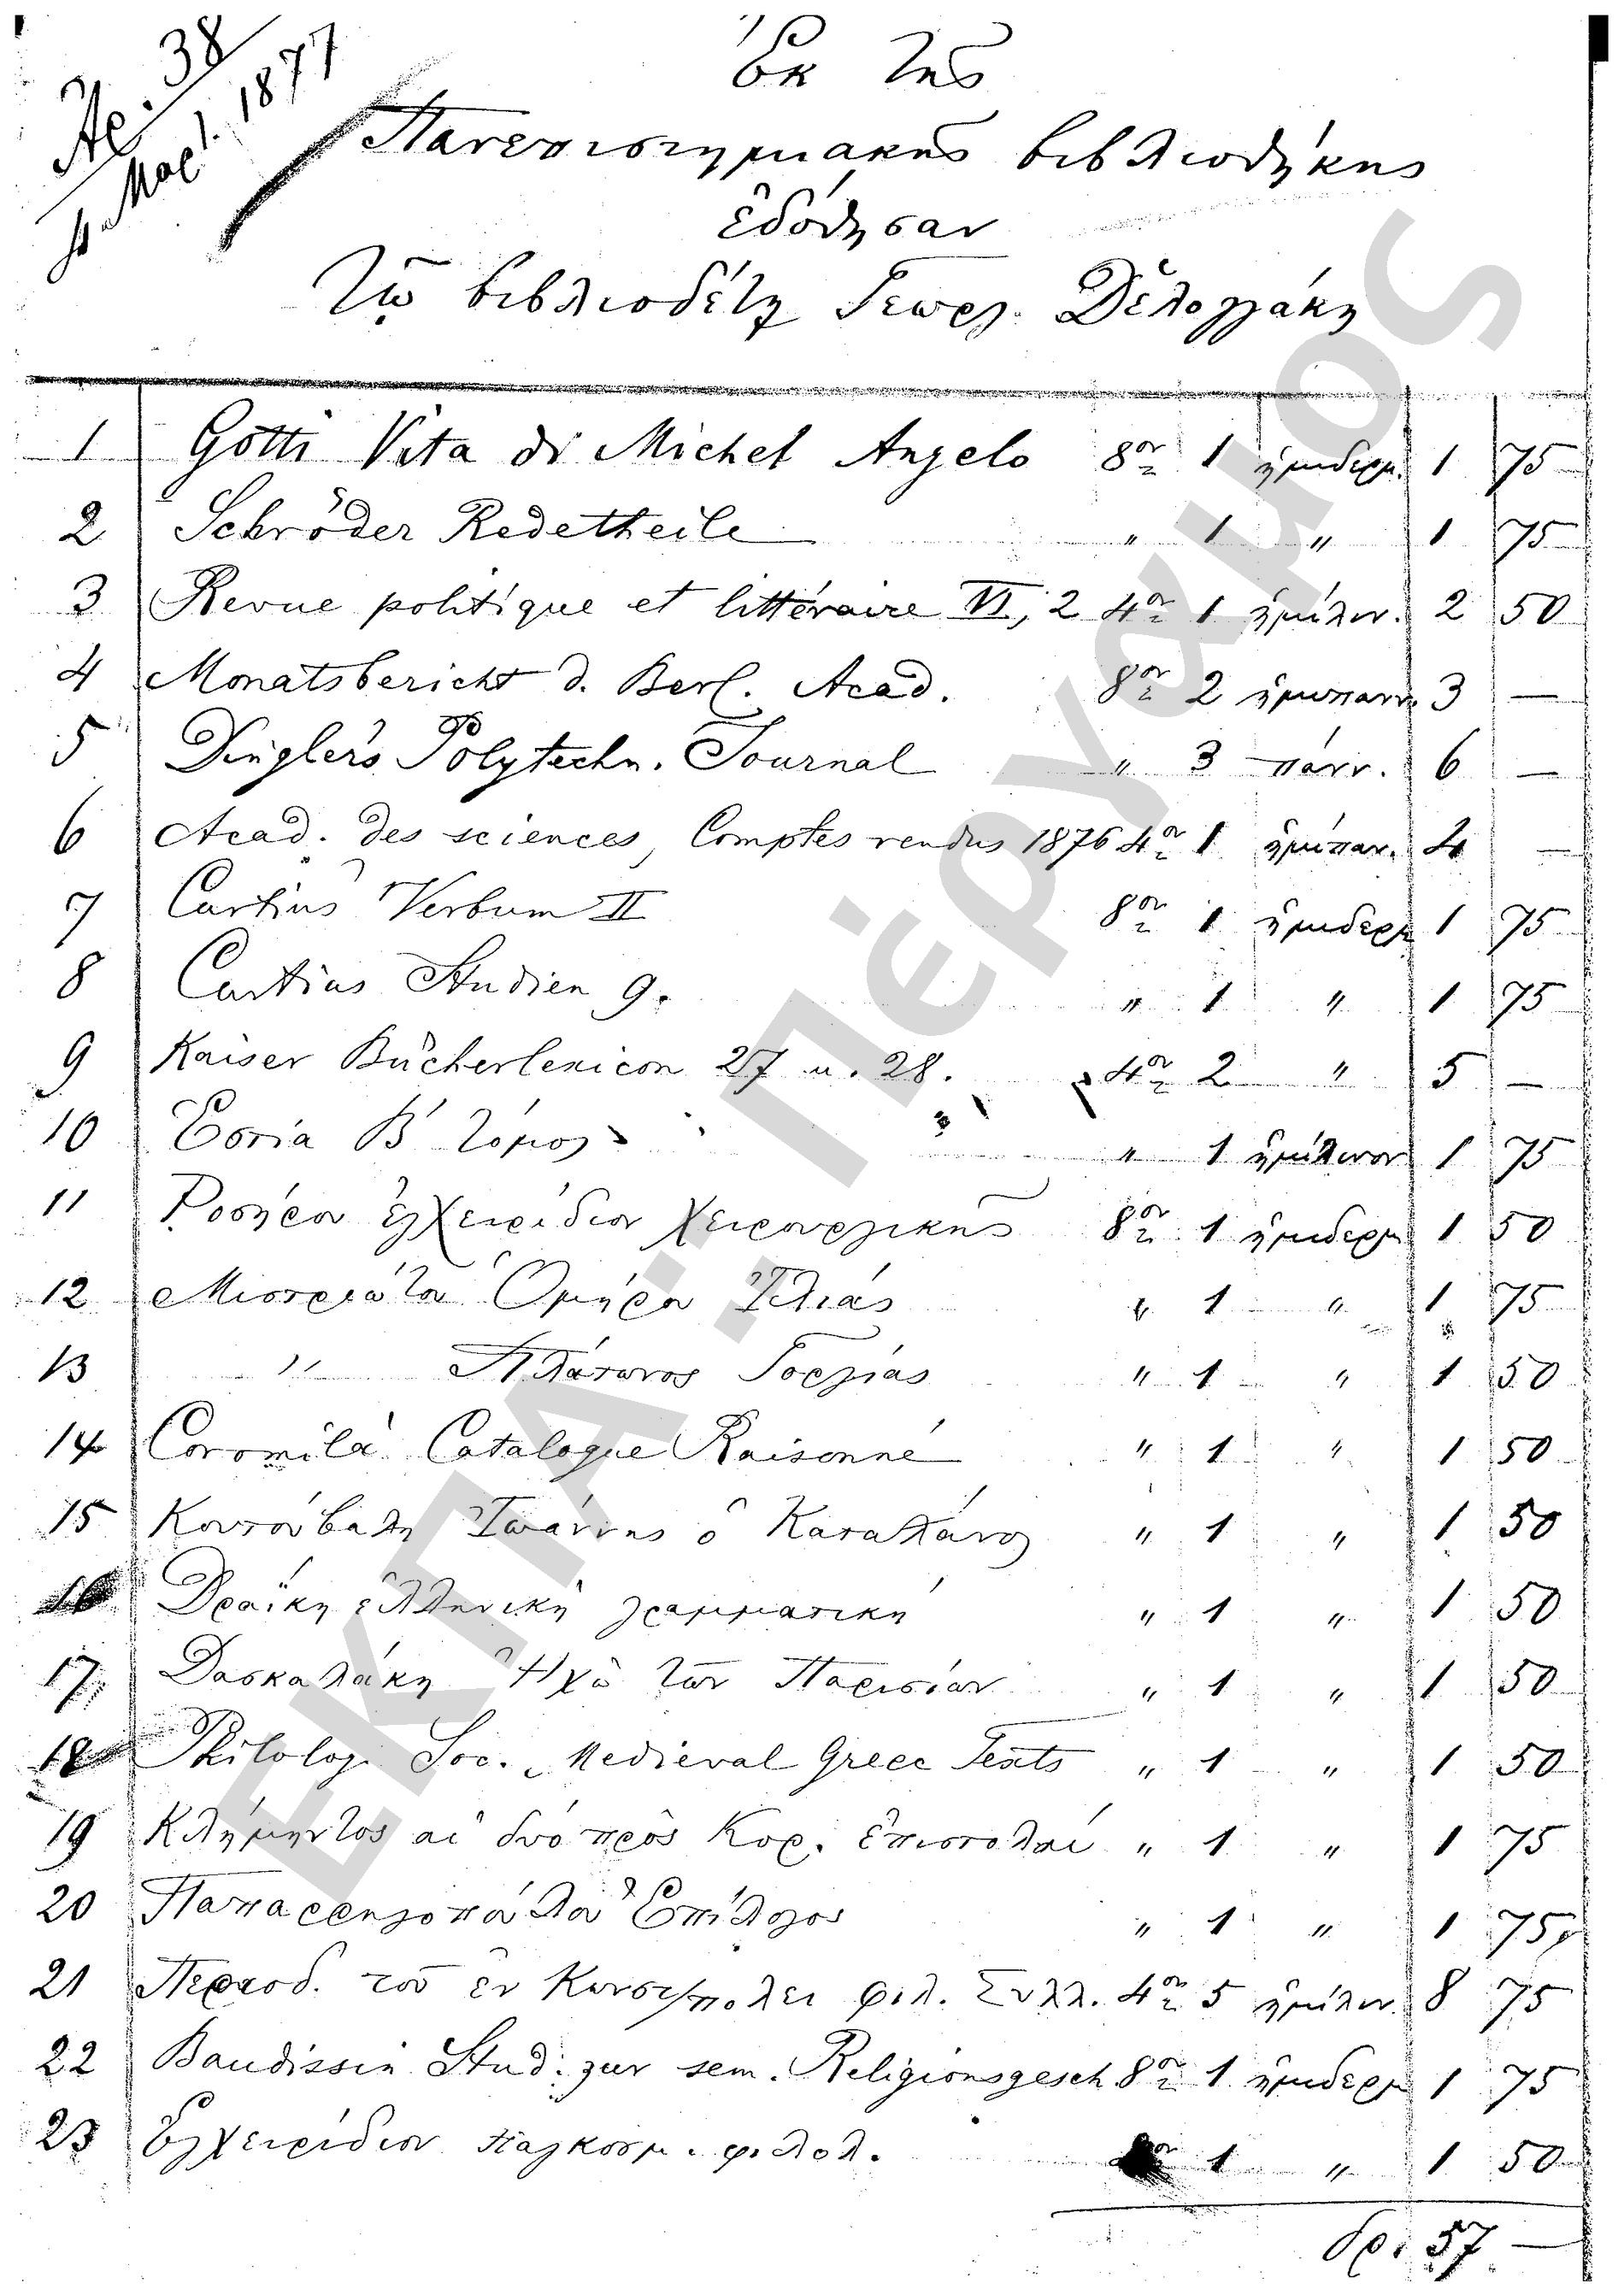 Ἀρ. 38
1877
Ἐκ τῆς
Πανεπιστημιακῆς βιβλιοθήκης
ἐδόθησαν
Τῷ βιβλιοδέτῃ Γεωργ. Δελογγάκη
1 Gotti Vita di Michel Angelo 8ον 1 ἡμιδερμ. 1 75
2 Schröder Redetheile " 1 " 1 75
3 Revue politique et littéraire VI, 2 4ον 1 ἡμίλιν. 2 50
4 Monatsbericht d. Berl. Acad. 8ον 2 ἡμιπανν. 3 —
5 Dinglers Polytechn. Journal " 3 πανν. 6 —
6 Acad. des sciences, Comptes rendus 1876 4ον 1 ἡμίπαν. 4 —
7 Curtius Verbum II 8ον 1 ἡμιδερμ 1 75
8 Curtius Studien 9. " 1 " 1 75
9 Kaiser Bücherlexicon 27 u. 28. 4ον 2 " 5 —
10 Ἑστία Β΄ τόμος " 1 ἡμίλινον 1 75
11 Ροσήρου ἐγχειρίδιον χειρουργικῆς 8ον 1 ἡμιδερμ 1 50
12 Μιστριώτου Ὁμήρου Ἰλιάς " 1 " 1 75
13 " Πλάτωνος Γοργίας " 1 " 1 50
14 Coromila Catalogue Raisonné " 1 " 1 50
15 Κουτούβαλη Ἰωάννης ὁ Καταλάνος " 1 " 1 50
16 Δραΐκη ἑλληνική γραμματική " 1 " 1 50
17 Δασκαλάκη Ἠχὼ τῶν Παρισίων " 1 " 1 50
18 Philolog. Soc. Medieval Greec Texts " 1 " 1 50
19 Κλήμηντος αἱ δύο πρὸς Κορ. ἐπιστολαί " 1 " 1 75
20 Παπαρρηγοπούλου Ἐπίλογος " 1 " 1 75
21 Περιοδ. τοῦ ἐν Κωνστ/πόλει φιλ. Συλλ. 4ον 5 ἡμίλιν. 8 75
22 Baudissin Stud. zur sem. Religionsgesch 8ον 1 ἡμιδερμ 1 75
23 Ἐγχειρίδιον παγκοσμ. φιλολ. 1 " 1 50
δρ. 57 —
ΕΚΠΑ: Πέργαμος